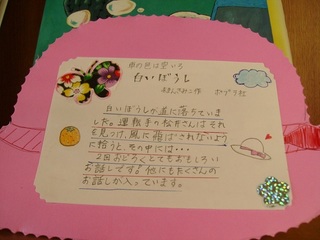 車の色は空いろ
白いぼうし
あまんきみこ作 ポプラ社
白いぼうしが道に落ちていま
した。運転手の松井さんはそれ
を見つけ、風に飛ばされないよう
に拾うと、その中には・・・
2回おどろくとてもおもしろい
お話しです。他にもたくさんの
お話しが入っています。